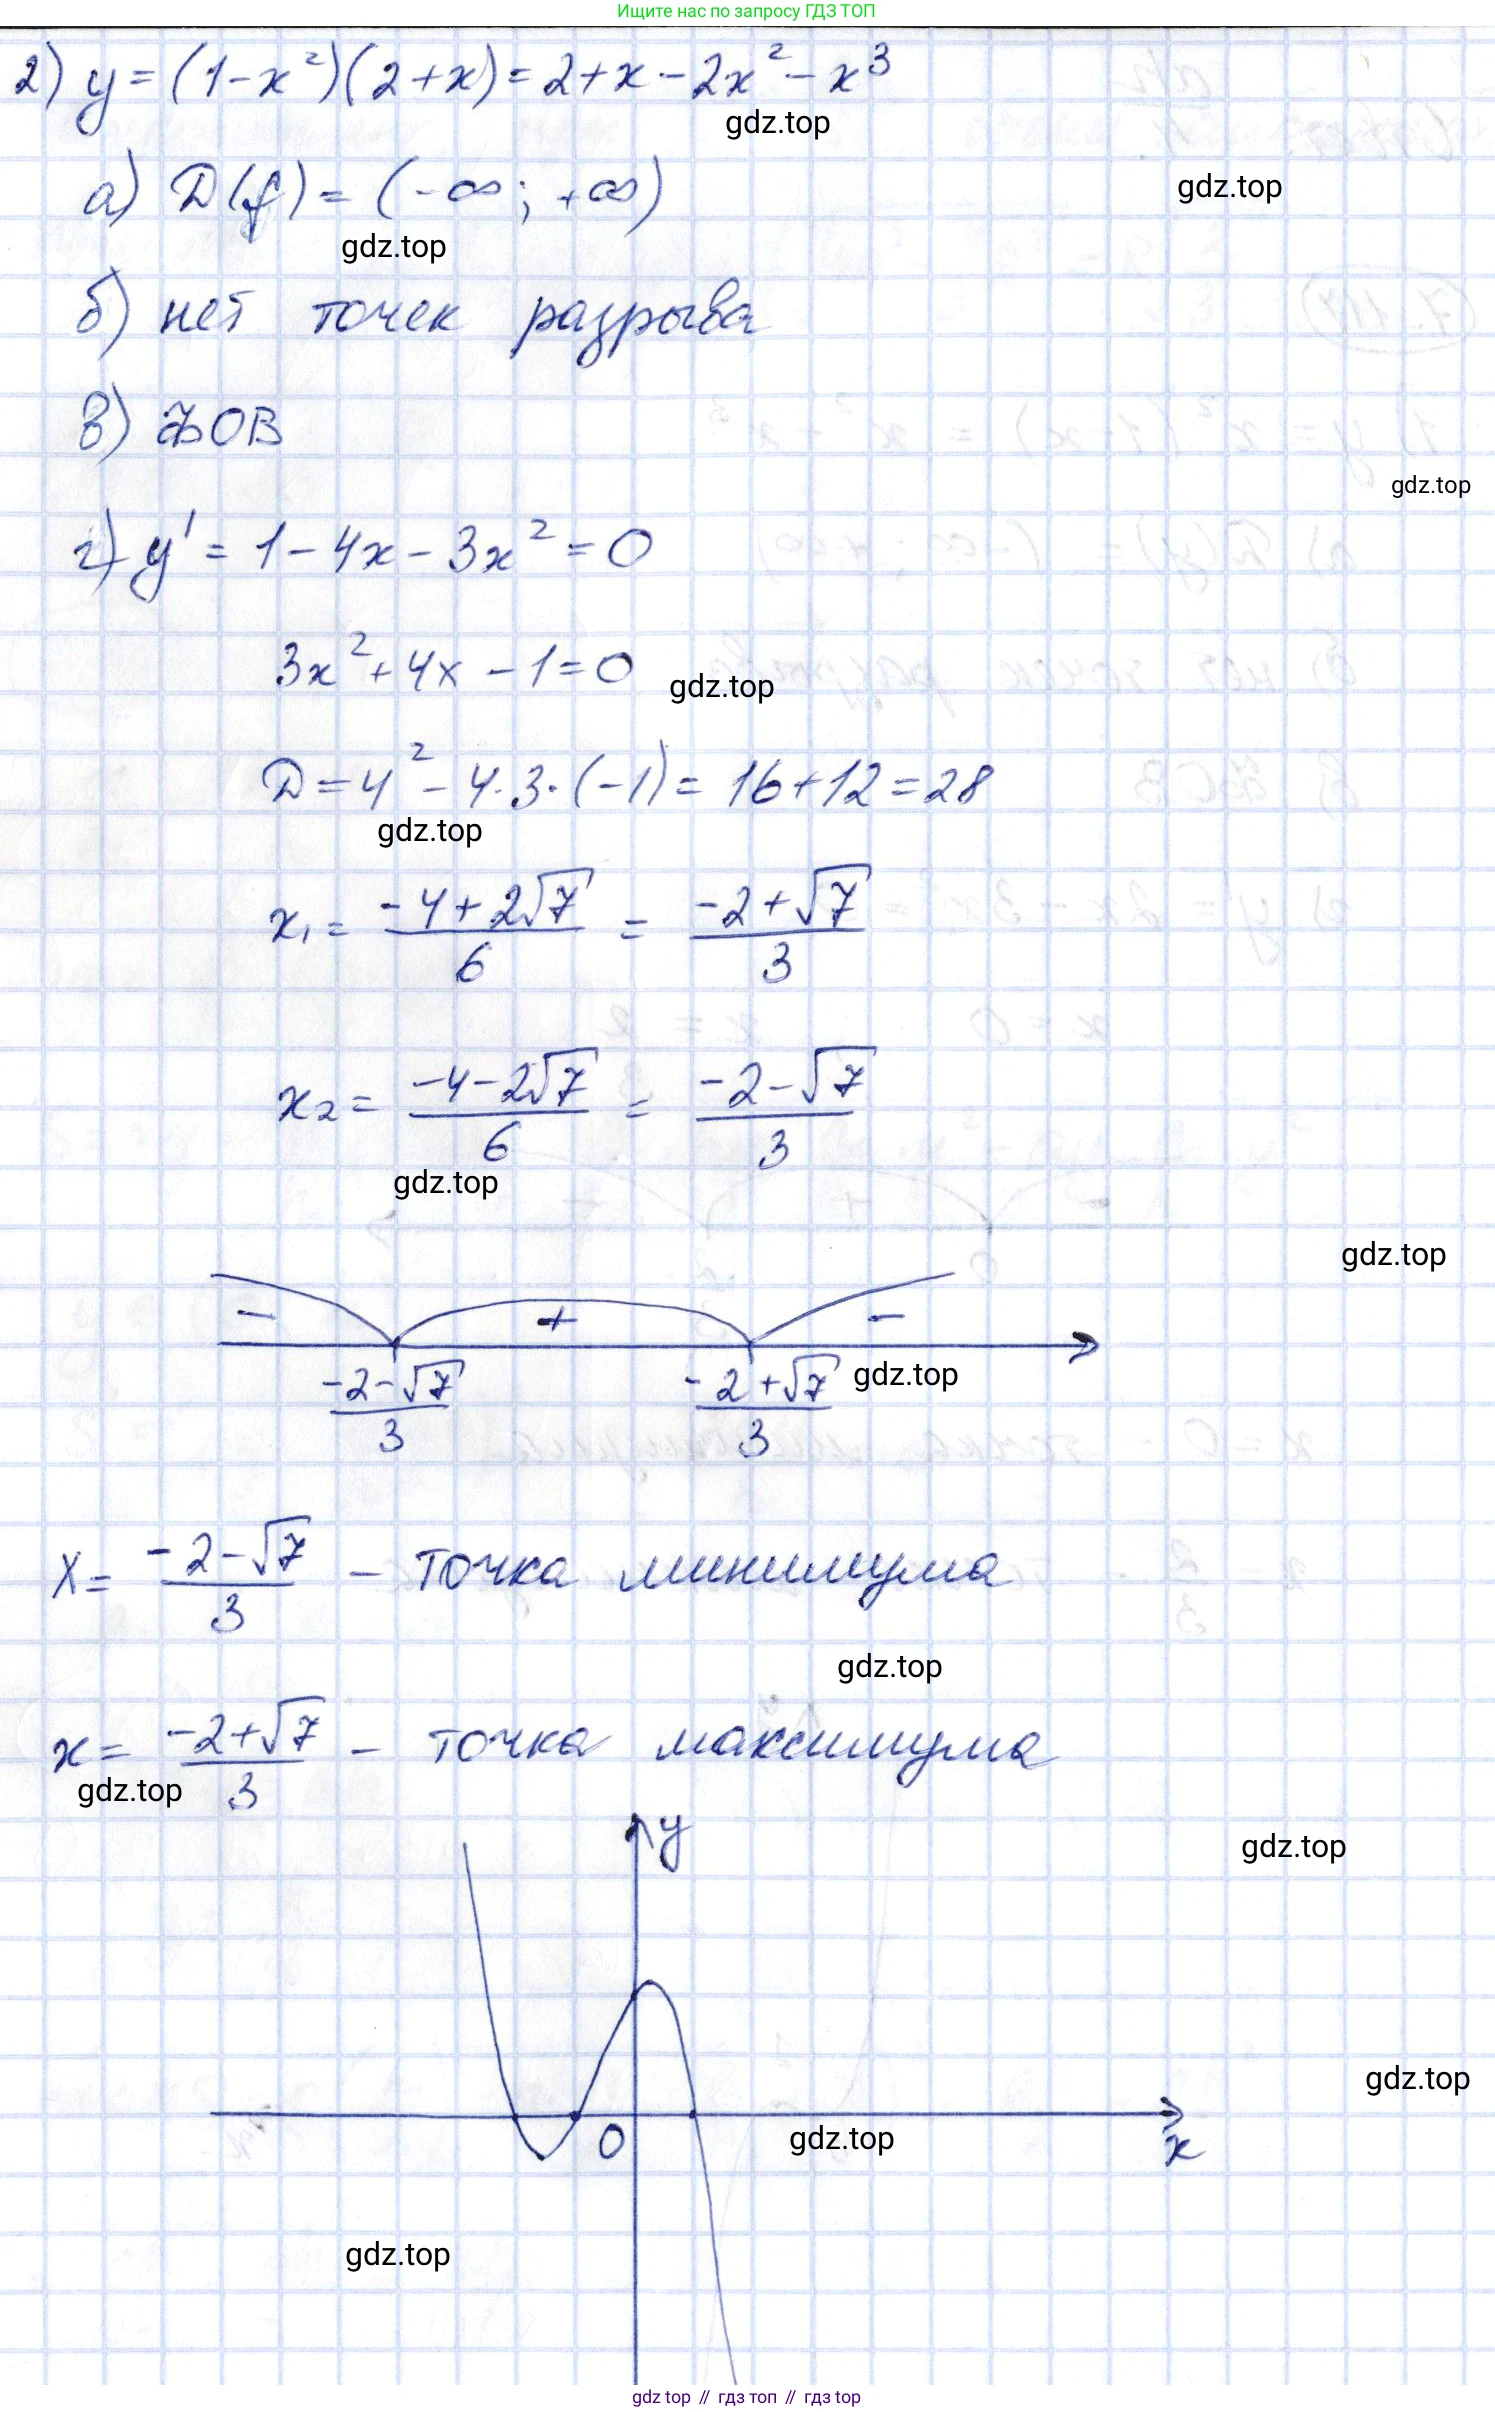 Ищите нас по запросу ГДЗ ТОП
2) y = (1-x²)(2+x) = 2+x-2x²-x³
gdz.top
gdz.top
а) D(f) = (-∞; +∞)
gdz.top
б) нет точек разрыва
в) ФОВ
gdz.top
г) y' = 1-4x-3x² = 0
3x²+4x-1=0
gdz.top
D=4²-4·3·(-1)=16+12=28
gdz.top
x₁ = (-4+2√7)/6 = (-2+√7)/3
x₂ = (-4-2√7)/6 = (-2-√7)/3
gdz.top
gdz.top
- + -
(-2-√7)/3 (-2+√7)/3 gdz.top
x = (-2-√7)/3 - точка минимума
gdz.top
x = (-2+√7)/3 - точка максимума
gdz.top
y
gdz.top
gdz.top
0 gdz.top x
gdz.top
gdz top // гдз топ // гдз top